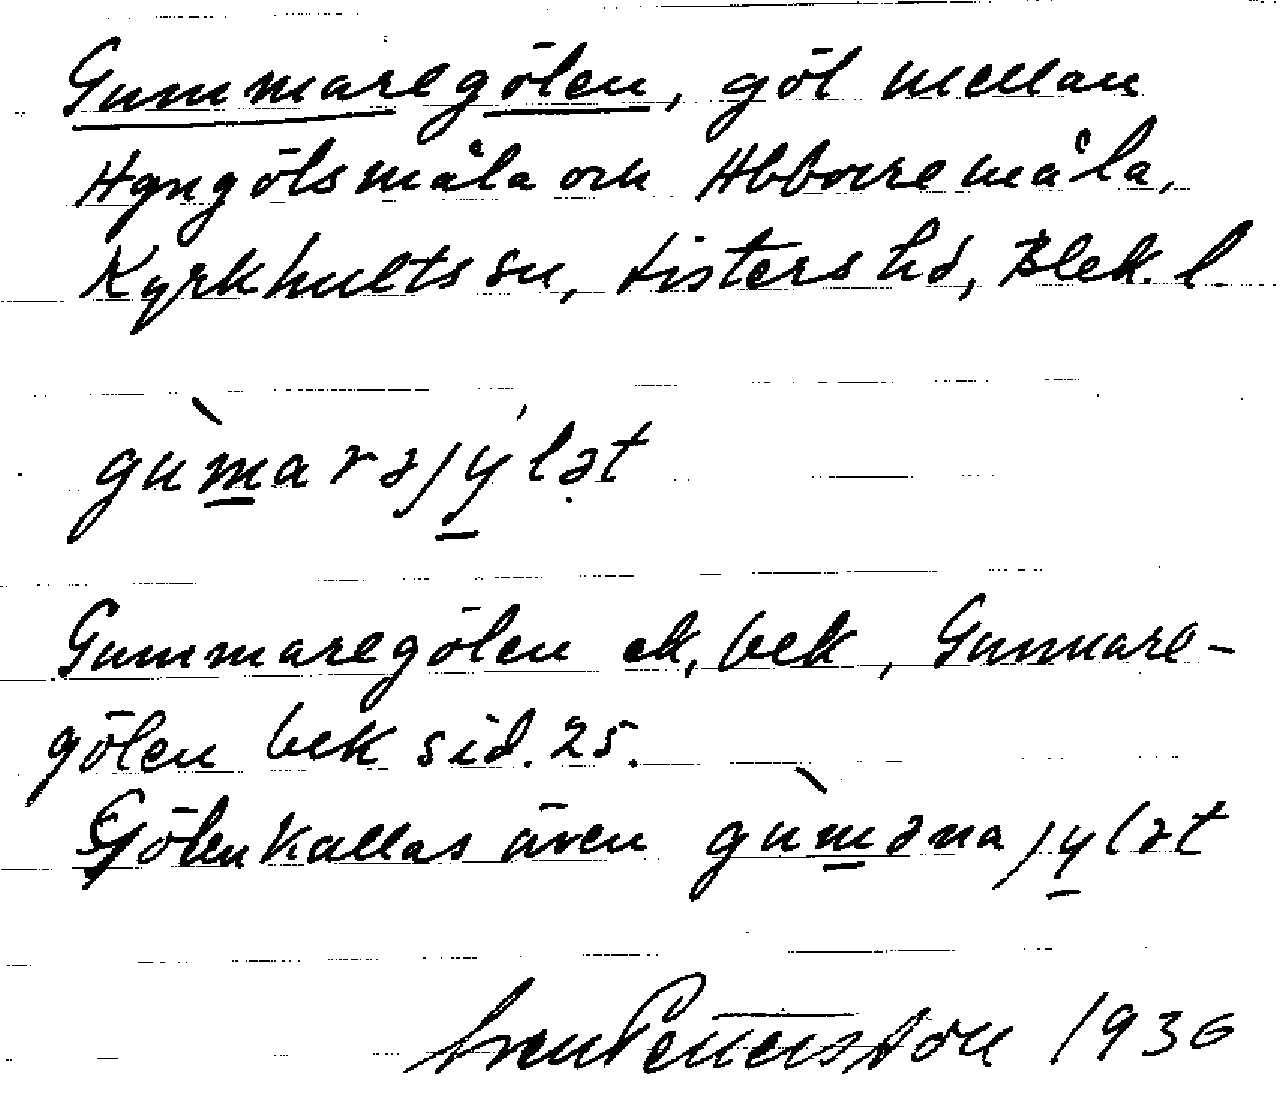 Gummaregölen, göl mellan
Hgngölsmåla och Abborremåla,
Kyrkhults sn, Listers hd, Blek. l.
gùmarəjýlət
Gummaregölen ek, bek, Gunnare-
gölen bek sid. 25.
Gölen kallas även gùmənajylət
Sven Pettersson 1936